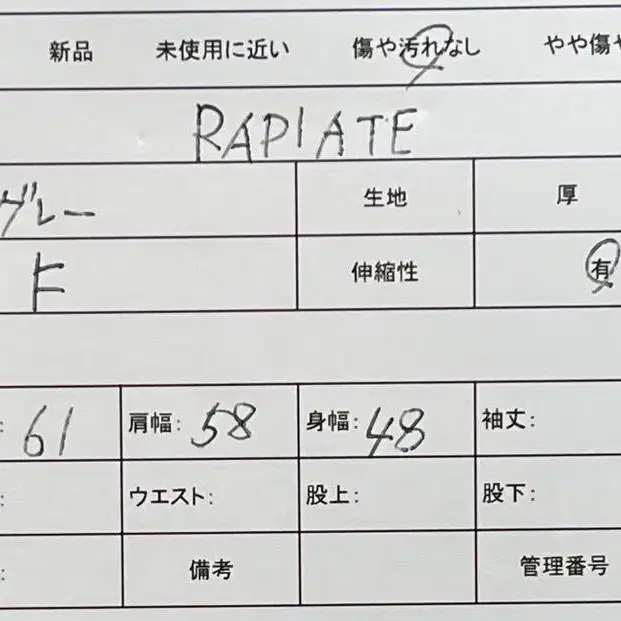 新品 未使用に近い 傷や汚れなし やや傷や
RAPIATE
グレー 生地 厚
F 伸縮性 有
: 61 肩幅: 58 身幅: 48 袖丈:
: ウエスト: 股上: 股下:
: 備考 管理番号